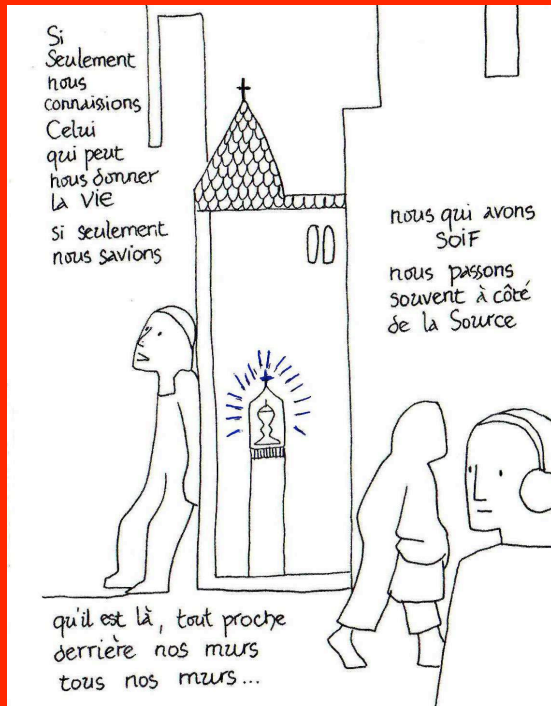 Si
Seulement
nous
connaissions
Celui
qui peut
nous donner
la ViE
si seulement
nous savions
nous qui avons
SOiF
nous passons
souvent à côté
de la Source
qu'il est là, tout proche
derrière nos murs
tous nos murs...